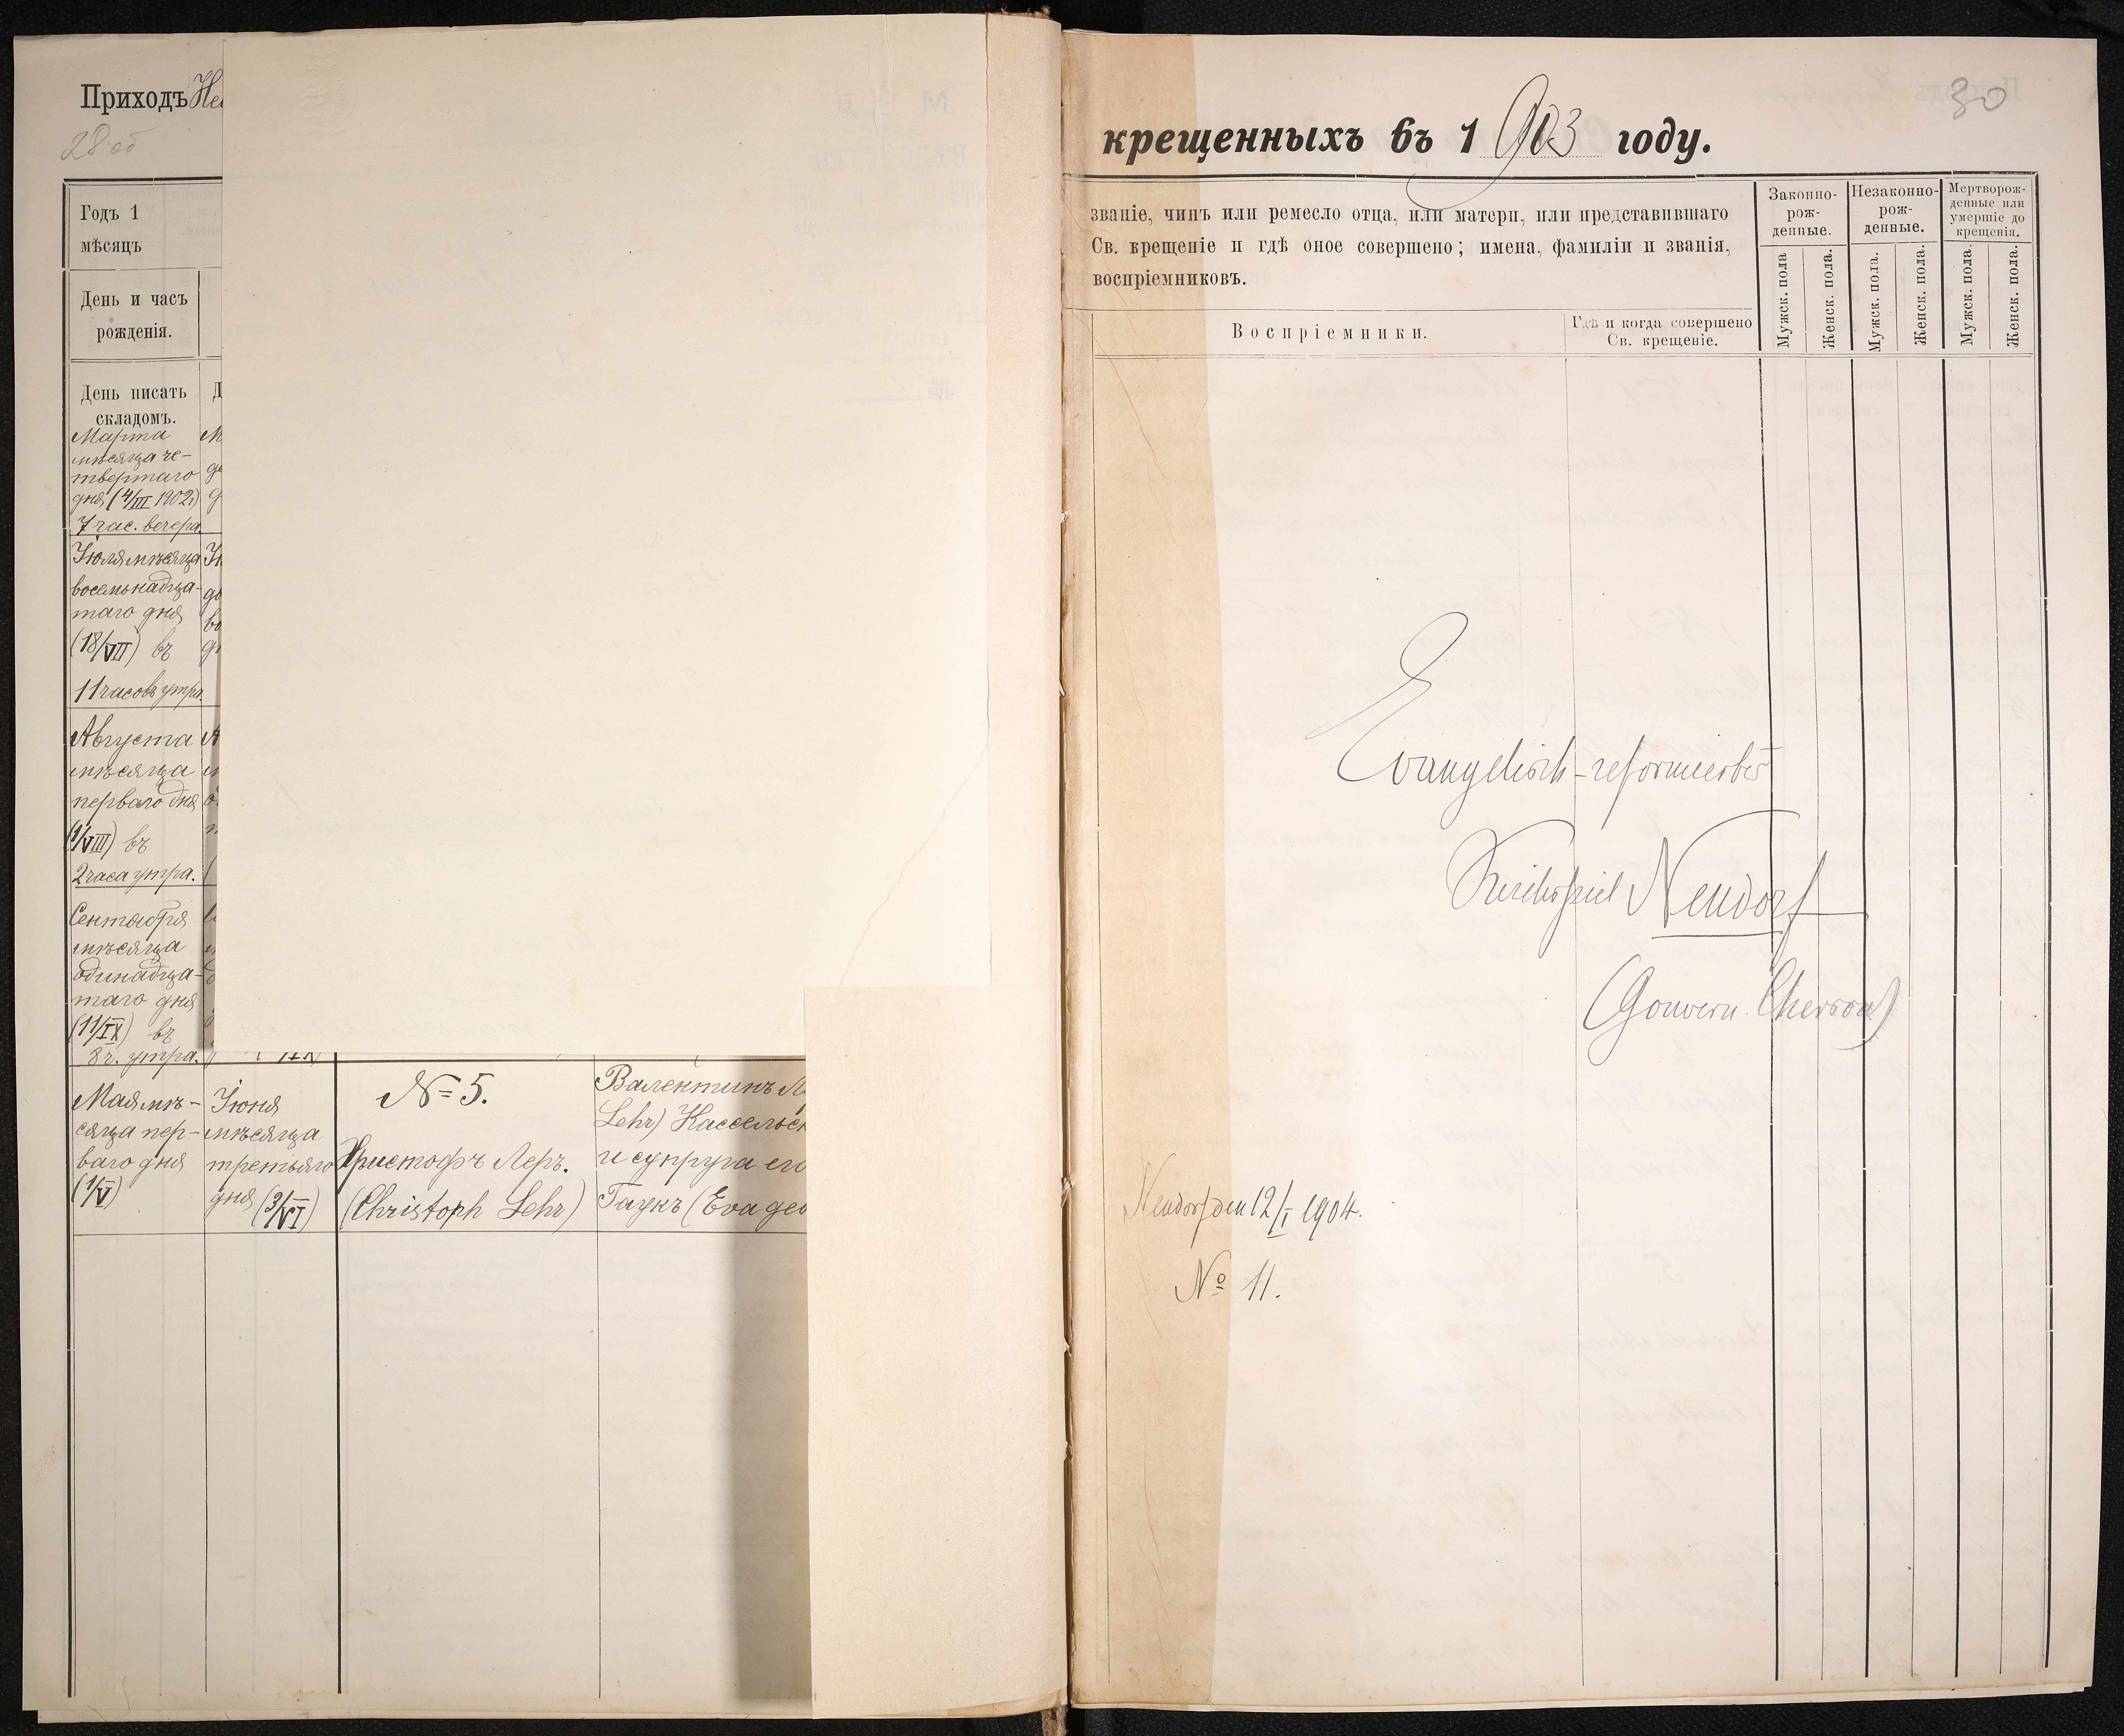 Приходъ
28 об
Годъ 1
мѣсяцъ
День и часъ
рожденія.
День писать
складомъ.
Марта
мѣсяца че-
твертаго
дня (4/III 1902г)
7 час. вечера.
Іюля мѣсяца
восемьнадца-
таго дня
(18/VII) въ
11 часовъ утра.
Августа
мѣсяца
перваго дня
(1/VIII) въ
2 часа утра.
Сентября
мѣсяца
одинадца-
таго дня
(11/IX) въ
8 ч. утра.
Мая мѣ-
сяца пер-
ваго дня
(1/V)
Іюня
мѣсяца
третьяго
дня (3/VI)
№ 5.
Христофъ Леръ.
(Christoph Lehr)
Валентинъ
Lehr)
и супруга
Гаукъ (Eva
30
крещенныхъ въ 1903 году.
званіе, чинъ или ремесло отца, или матери, или представившаго
Св. крещеніе и гдѣ оное совершено; имена, фамиліи и званія,
воспріемниковъ.
Воспріемники.
Гдѣ и когда совершено
Св. крещеніе.
Законно-
рож-
денные.
Незаконно-
рож-
денные.
Мертворож-
денные или
умершіе до
крещенія.
Мужск. пола
Женск. пола.
Мужск. пола.
Женск. пола.
Мужск. пола.
Женск. пола.
Evangelisch-reformiertes
Kirchspiel Neudorf
(Gouvern. Cherson)
Neudorf den 12/I 1904.
№ 11.